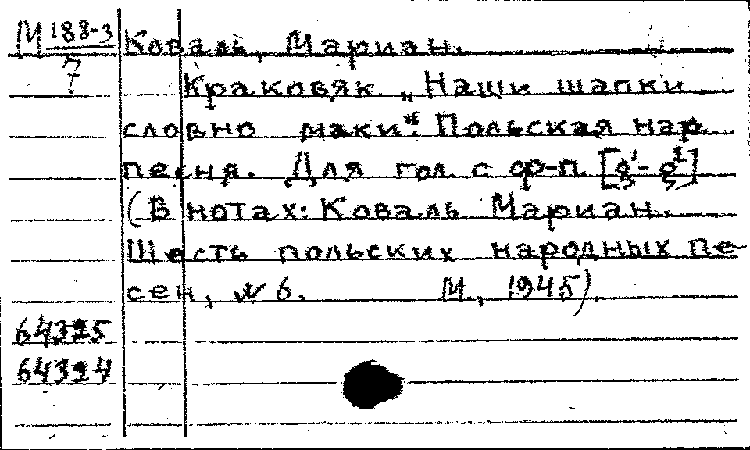 М 188-3
7
Коваль, Мариан.
Краковяк „Наши шапки
словно маки". Польская нар.
песня. Для гол. с ф-п.
(В нотах: Коваль Мариан.
Шесть польских народных пе-
сен, № 6. М., 1945).
64325
64324